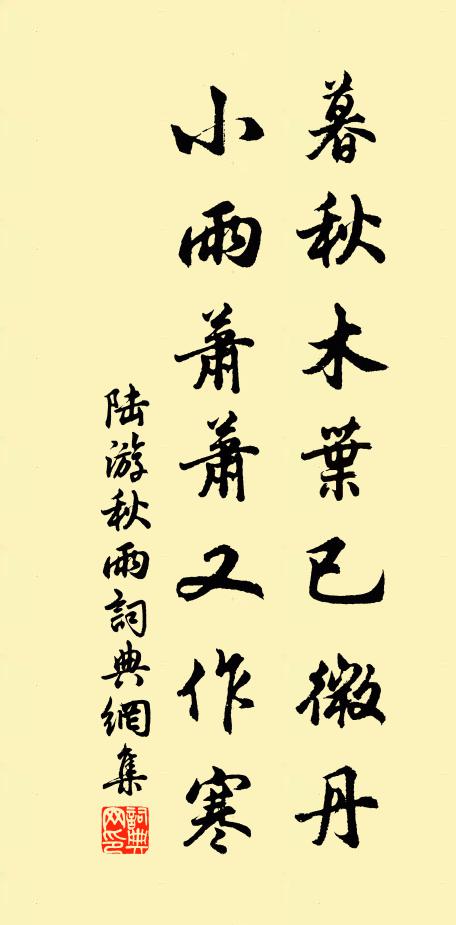 暮秋木葉已微丹
小雨蕭蕭又作寒
陸游秋雨詞典網集
詞典网印